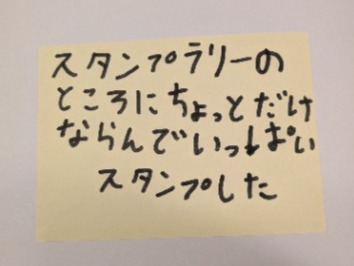 スタンプラリーの
ところにちょっとだけ
ならんでいっぱい
スタンプした